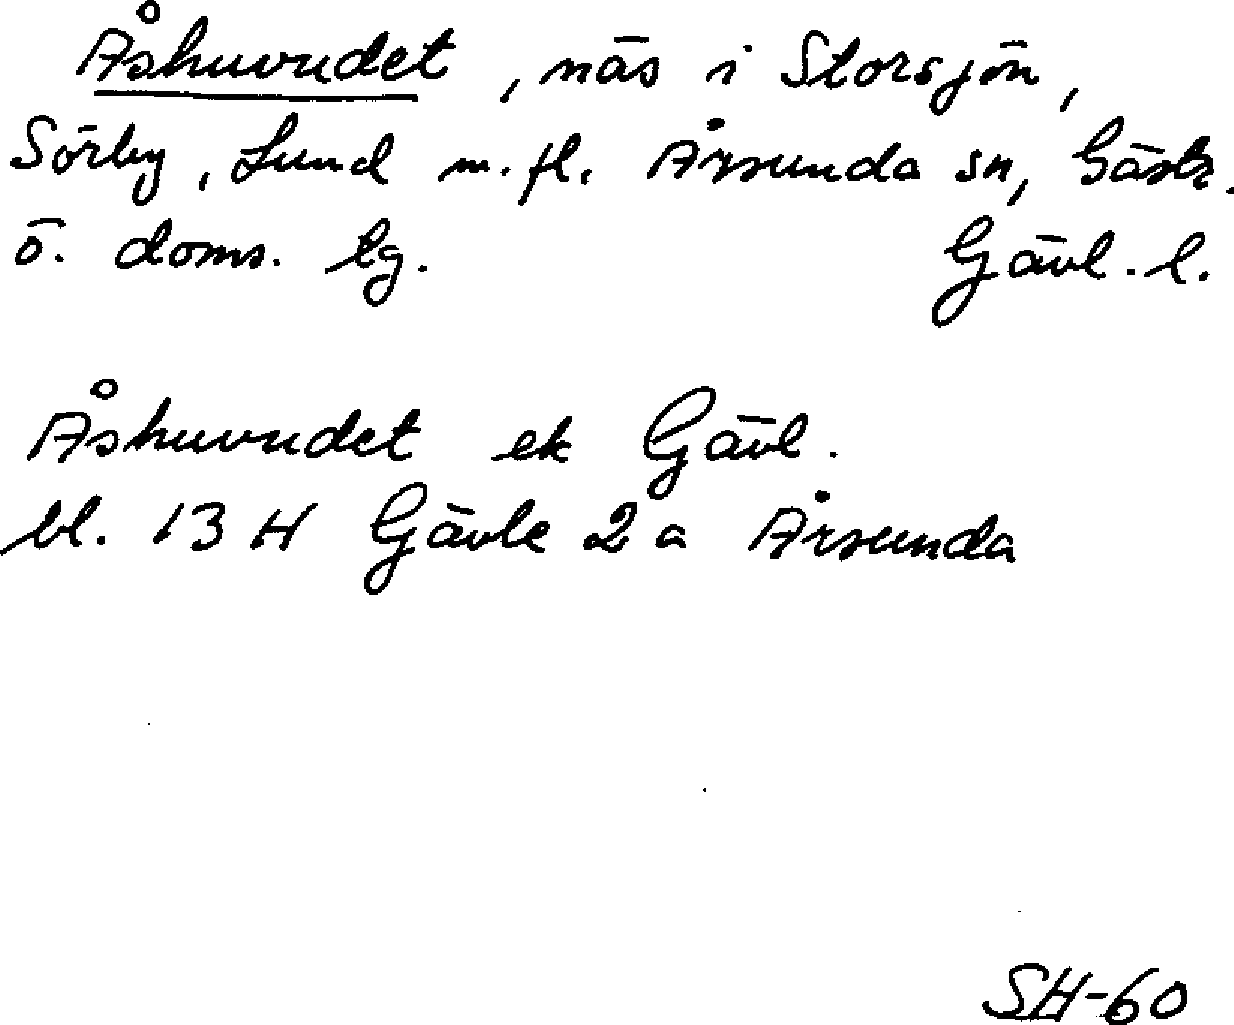 Åshuvudet, näs i Storsjön,
Sörby, Lund m.fl. Årsunda sn, Gästr.
ö. doms. lg. Gävl. l.
Åshuvudet ek Gävl.
bl. 13 H Gävle 2 a Årsunda
SH-60